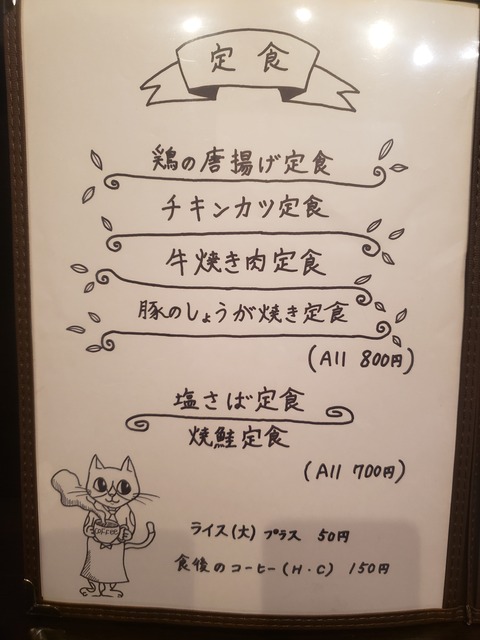 定食
鶏の唐揚げ定食
チキンカツ定食
牛焼き肉定食
豚のしょうが焼き定食
(All 800円)
塩さば定食
焼鮭定食
(All 700円)
coffee
ライス(大) プラス 50円
食後のコーヒー(H・C) 150円